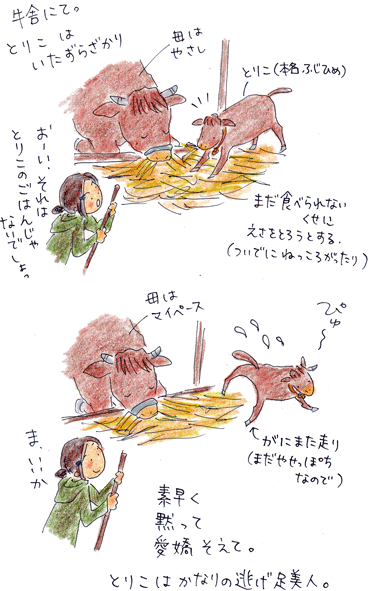 牛舎にて。
とりこ は
いたずらざかり
母は
やさし
とりこ(本名ふじひめ)
おーい、それは
とりこのごはんじゃ
ないでしょっ
まだ食べられない
くせに
えさをとろうとする.
(ついでにねっころがったり)
母は
マイペース
ぴゅ〜
がにまた走り
(まだやせっぽち
なので)
ま、いいか
素早く
黙って
愛嬌 そえて。
とりこは かなりの逃げ足美人。